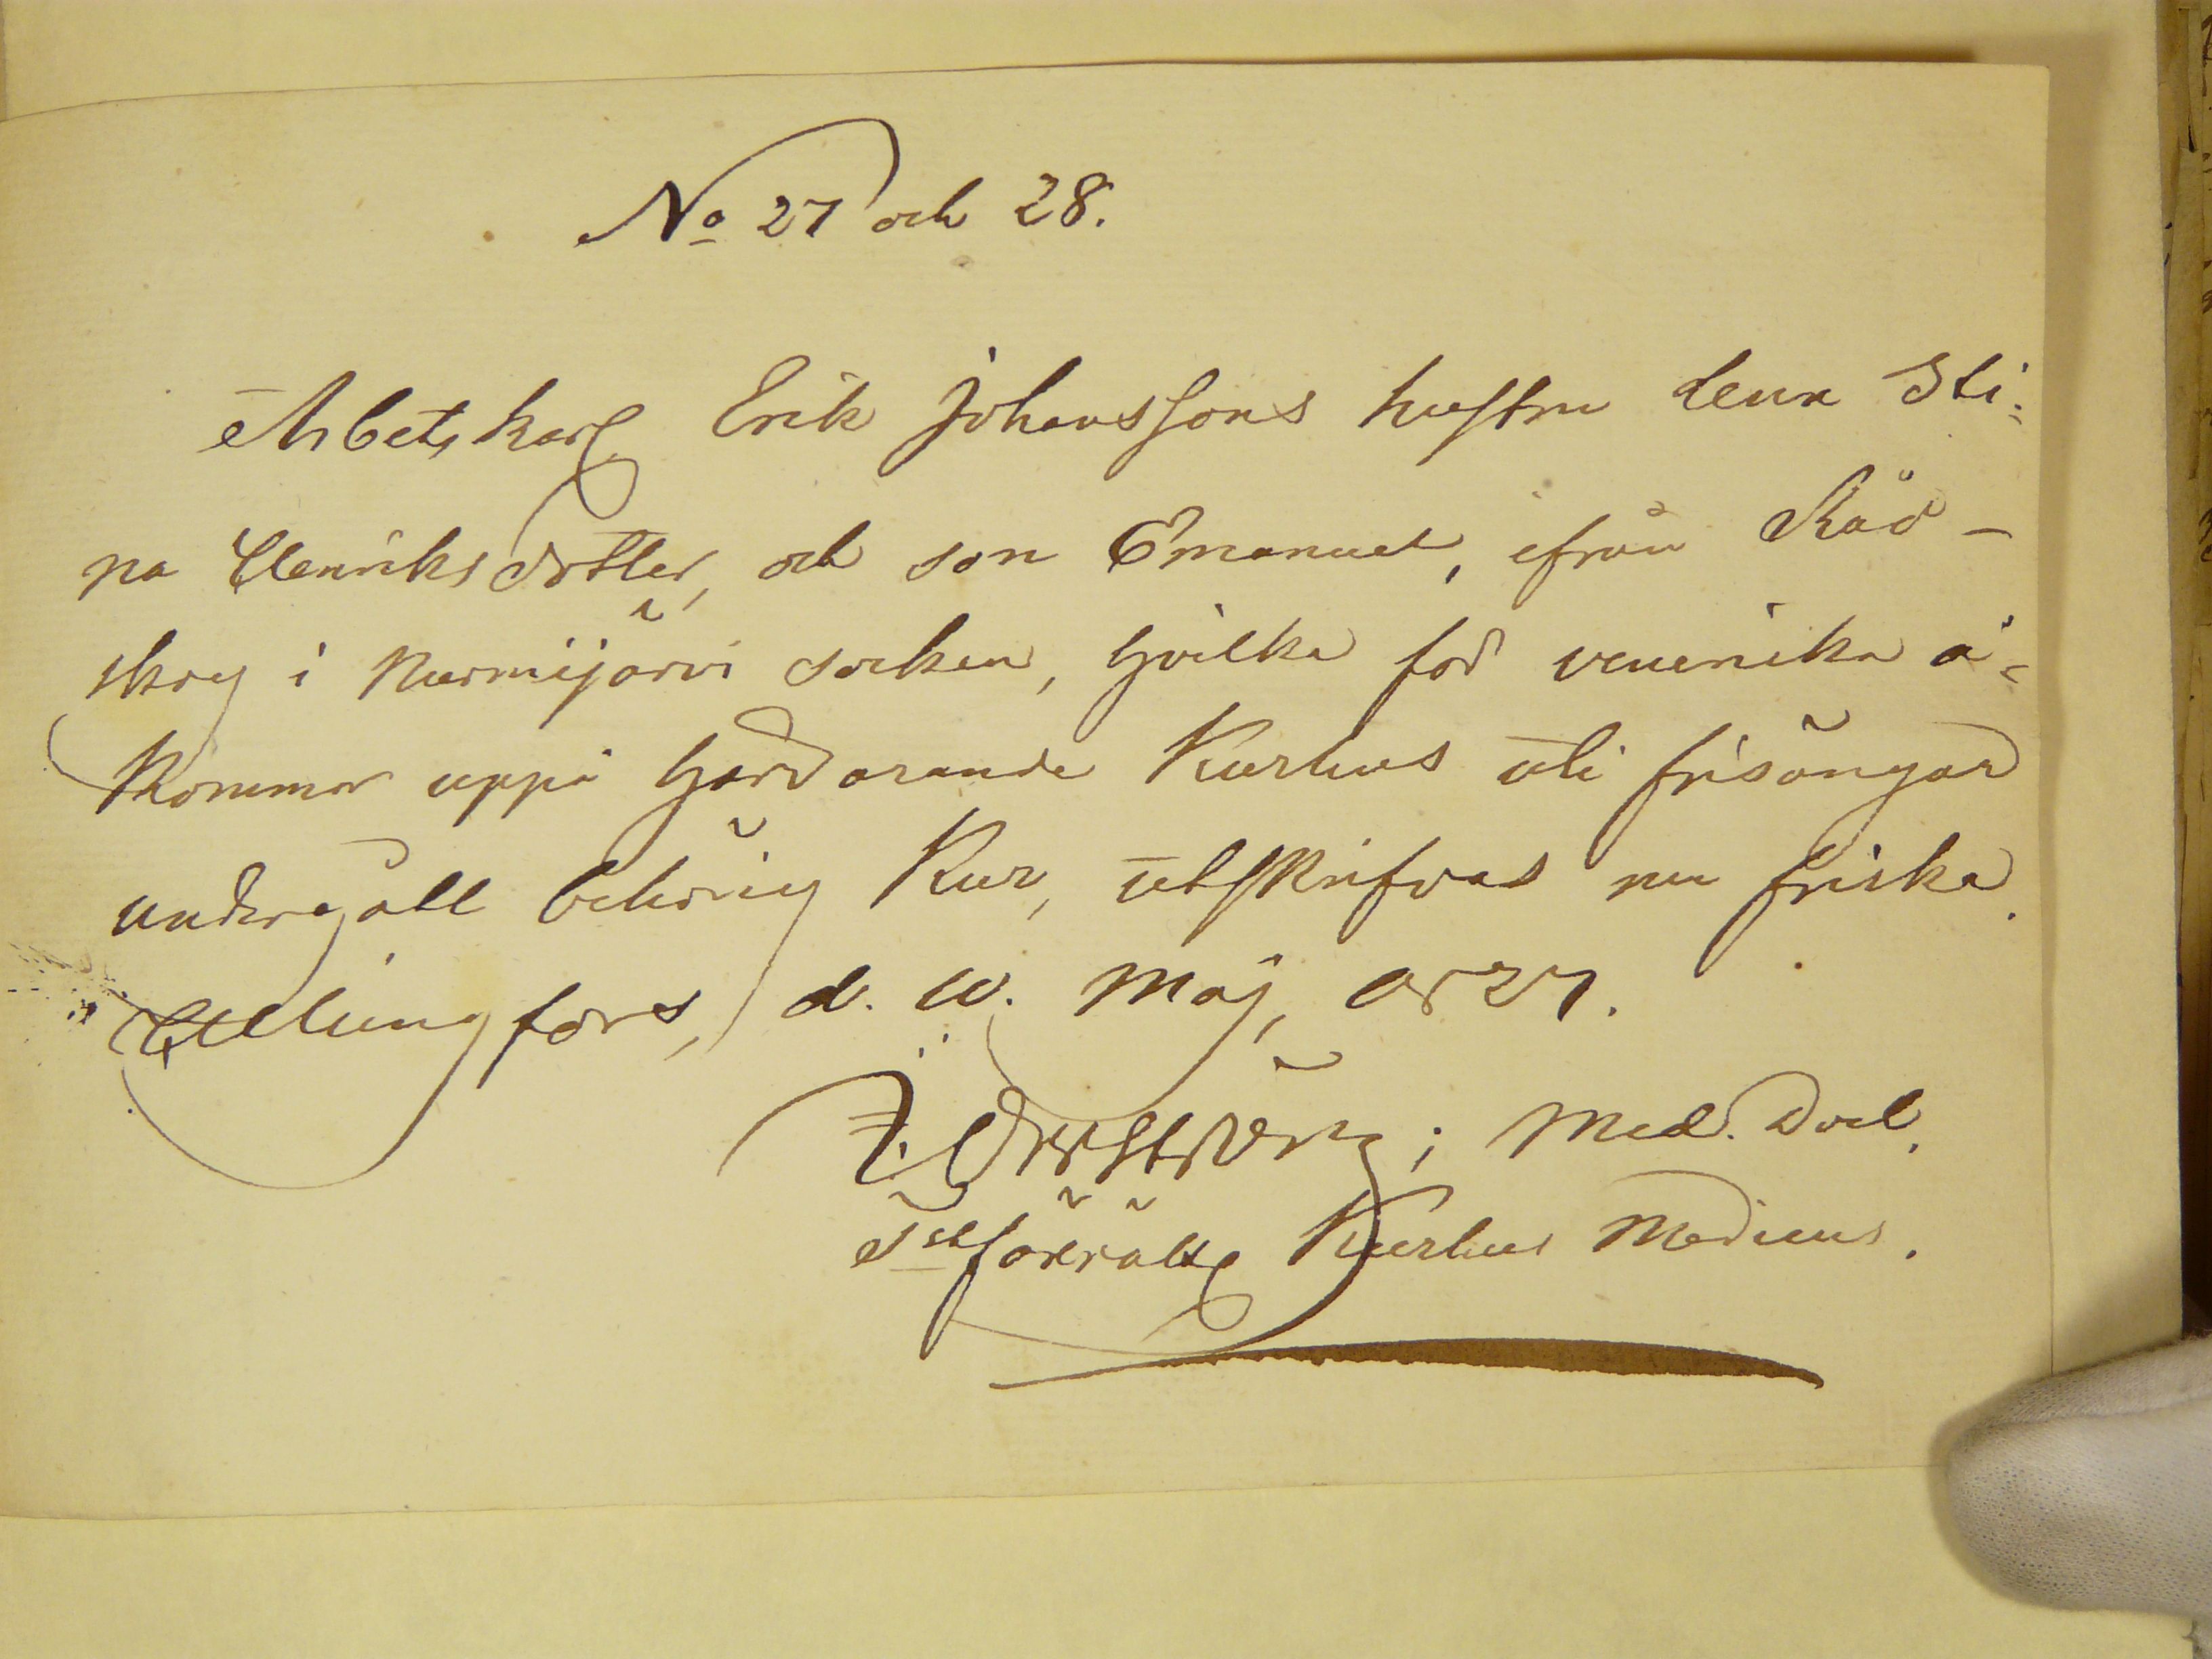 No 27 och 28.
Arbets karl Erik Johanssons hustru Lena Sti-
na Henriksdotter, och son Emanuel, ifrån Räf-
skog i Nurmijärvi socken, hvilka för veneriska å-
kommor uppå härvarande Kurhus uti frisängar
undergått behörig Kur, utskrifvas nu friska.
Helsingfors, d. 10. Maj, 1827.
Med. Doct.
T.f. förrätt. Kurhus Medicus.